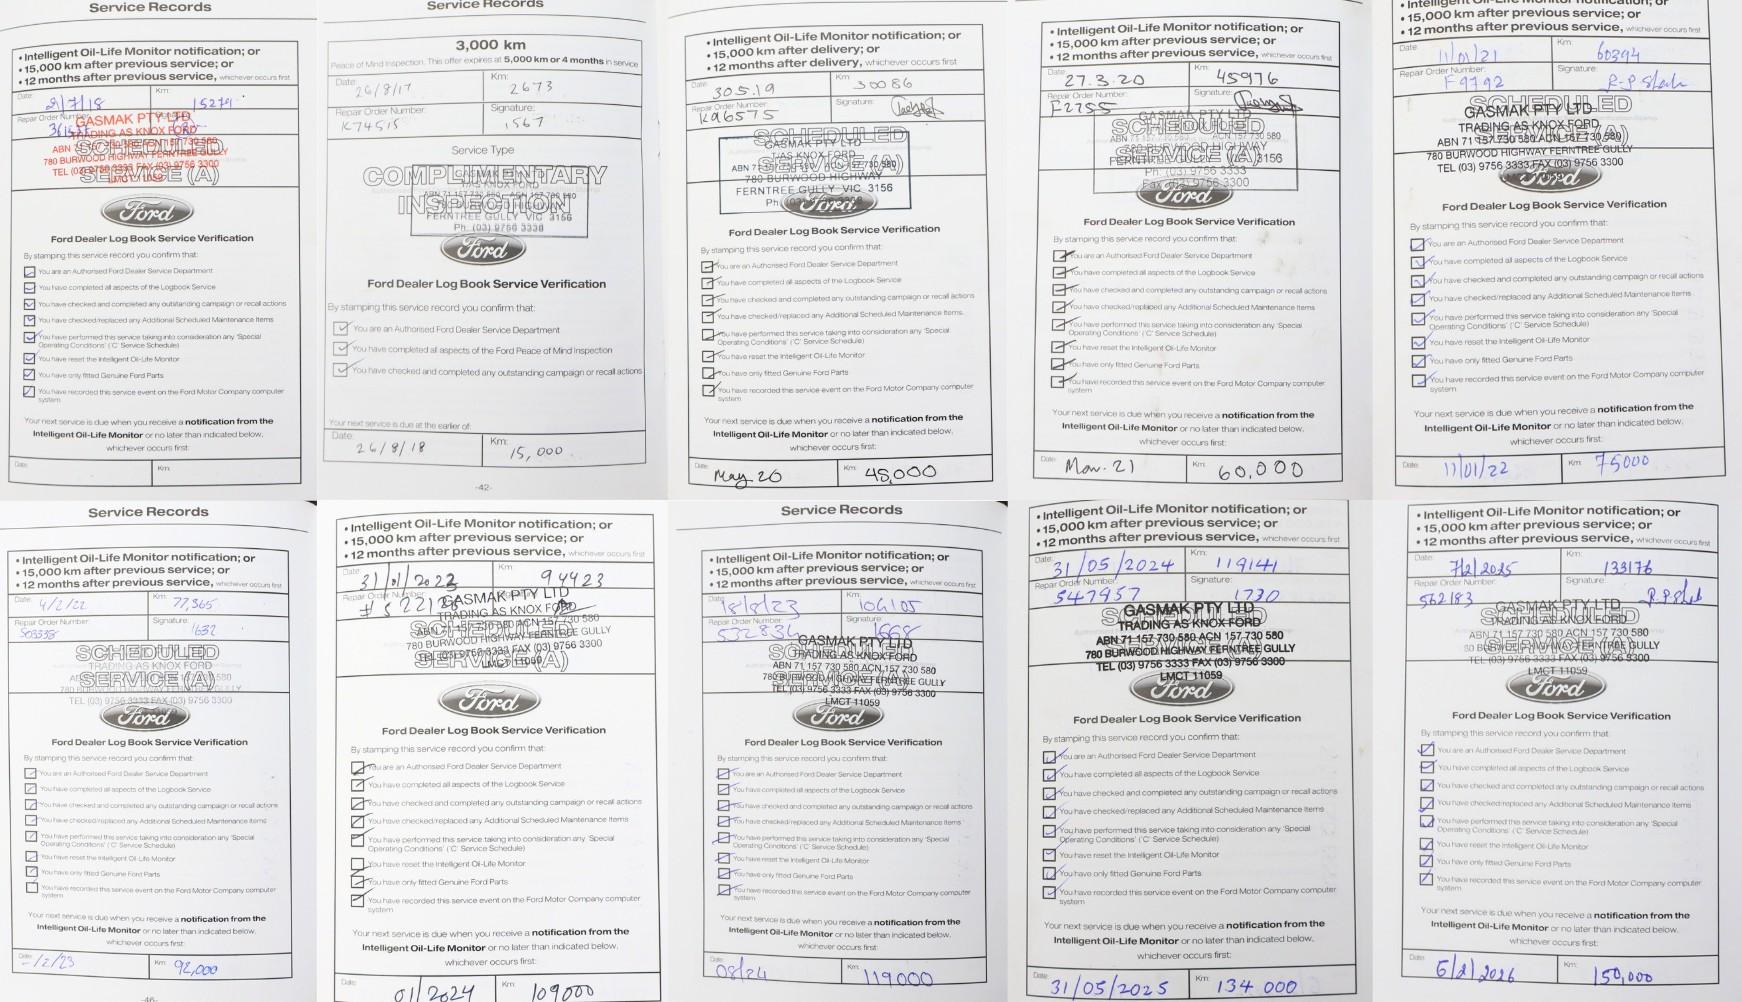 • Intelligent Oil-Life Monitor notification; or
• 15,000 km after previous service; or
• 12 months after previous service, whichever occurs first
Date: 2/7/18 Km: 15279
Repair Order Number:
GASMAK PTY LTD
TRADING AS KNOX FORD
SCHEDULED
780 BURWOOD HIGHWAY FERNTREE GULLY
TEL (03) 9756 3333 FAX (03) 9756 3300
SERVICE (A)
LMCT 11059
Ford
Ford Dealer Log Book Service Verification
By stamping this service record you confirm that:
You are an Authorised Ford Dealer Service Department
You have completed all aspects of the Logbook Service
You have checked and completed any outstanding campaign or recall actions
You have checked/replaced any Additional Scheduled Maintenance Items
You have performed this service taking into consideration any 'Special
Operating Conditions' ('C' Service Schedule)
You have reset the Intelligent Oil-Life Monitor
You have only fitted Genuine Ford Parts
You have recorded this service event on the Ford Motor Company computer
system
Your next service is due when you receive a notification from the
Intelligent Oil-Life Monitor or no later than indicated below,
whichever occurs first:
Date: Km:
Service Records
3,000 km
Peace of Mind Inspection. This offer expires at 5,000 km or 4 months in service
Date: 26/8/17 Km: 2673
Repair Order Number: K74515 Signature: 1567
Service Type
COMPLIMENTARY
INSPECTION
FERNTREE GULLY VIC 3156
Ph. (03) 9756 3338
Ford
Ford Dealer Log Book Service Verification
By stamping this service record you confirm that:
You are an Authorised Ford Dealer Service Department
You have completed all aspects of the Ford Peace of Mind Inspection
You have checked and completed any outstanding campaign or recall actions
Your next service is due at the earlier of:
Date: 26/8/18 Km: 15,000
-42-
• Intelligent Oil-Life Monitor notification; or
• 15,000 km after delivery; or
• 12 months after delivery, whichever occurs first
Date: 30.5.19 Km: 30086
Repair Order Number: K96575 Signature:
SCHEDULED
GASMAK PTY LTD
T/AS KNOX FORD
SERVICE (A)
780 BURWOOD HIGHWAY
FERNTREE GULLY VIC 3156
Ford
Ford Dealer Log Book Service Verification
By stamping this service record you confirm that:
You are an Authorised Ford Dealer Service Department
You have completed all aspects of the Logbook Service
You have checked and completed any outstanding campaign or recall actions
You have checked/replaced any Additional Scheduled Maintenance Items.
You have performed this service taking into consideration any 'Special
Operating Conditions' ('C' Service Schedule)
You have reset the Intelligent Oil-Life Monitor
You have only fitted Genuine Ford Parts
You have recorded this service event on the Ford Motor Company computer
system
Your next service is due when you receive a notification from the
Intelligent Oil-Life Monitor or no later than indicated below,
whichever occurs first:
Date: May 20 Km: 45,000
• Intelligent Oil-Life Monitor notification; or
• 15,000 km after previous service; or
• 12 months after previous service, whichever occurs first
Date: 27.3.20 Km: 45976
Repair Order Number: F2755 Signature:
GASMAK PTY LTD
SCHEDULED
SERVICE (A)
Ph: (03) 9756 3333
Fax (03) 9756 3300
Ford
Ford Dealer Log Book Service Verification
By stamping this service record you confirm that:
You are an Authorised Ford Dealer Service Department
You have completed all aspects of the Logbook Service
You have checked and completed any outstanding campaign or recall actions
You have checked/replaced any Additional Scheduled Maintenance Items
You have performed this service taking into consideration any 'Special
Operating Conditions' ('C' Service Schedule)
You have reset the Intelligent Oil-Life Monitor
You have only fitted Genuine Ford Parts
You have recorded this service event on the Ford Motor Company computer
system
Your next service is due when you receive a notification from the
Intelligent Oil-Life Monitor or no later than indicated below,
whichever occurs first:
Date: Mar. 21 Km: 60,000
• 15,000 km after previous service; or
• 12 months after previous service, whichever occurs first
Date: 11/01/21 Km: 60394
Repair Order Number: F9792 Signature:
SCHEDULED
GASMAK PTY LTD
TRADING AS KNOX FORD
SERVICE (A)
ABN 71 157 730 580 ACN 157 730 580
780 BURWOOD HIGHWAY FERNTREE GULLY
TEL (03) 9756 3333 FAX (03) 9756 3300
Ford
Ford Dealer Log Book Service Verification
By stamping this service record you confirm that:
You are an Authorised Ford Dealer Service Department
You have completed all aspects of the Logbook Service
You have checked and completed any outstanding campaign or recall actions
You have checked/replaced any Additional Scheduled Maintenance Items
You have performed this service taking into consideration any 'Special
Operating Conditions' ('C' Service Schedule)
You have reset the Intelligent Oil-Life Monitor
You have only fitted Genuine Ford Parts
You have recorded this service event on the Ford Motor Company computer
system
Your next service is due when you receive a notification from the
Intelligent Oil-Life Monitor or no later than indicated below,
whichever occurs first:
Date: 11/01/22 Km: 75000
Service Records
• Intelligent Oil-Life Monitor notification; or
• 15,000 km after previous service; or
• 12 months after previous service, whichever occurs first
Date: 4/2/22 Km: 77,365
Repair Order Number: 503338 Signature: 1632
SCHEDULED
TRADING AS KNOX FORD
SERVICE (A)
780 BURWOOD HIGHWAY FERNTREE GULLY
TEL (03) 9756 3333 FAX (03) 9756 3300
Ford
Ford Dealer Log Book Service Verification
By stamping this service record you confirm that:
You are an Authorised Ford Dealer Service Department
You have completed all aspects of the Logbook Service
You have checked and completed any outstanding campaign or recall actions
You have checked/replaced any Additional Scheduled Maintenance Items
You have performed this service taking into consideration any 'Special
Operating Conditions' ('C' Service Schedule)
You have reset the Intelligent Oil-Life Monitor
You have only fitted Genuine Ford Parts
You have recorded this service event on the Ford Motor Company computer
system
Your next service is due when you receive a notification from the
Intelligent Oil-Life Monitor or no later than indicated below,
whichever occurs first:
Date: -/2/23 Km: 92,000
-46-
• Intelligent Oil-Life Monitor notification; or
• 15,000 km after previous service; or
• 12 months after previous service, whichever occurs first
Date: Km: 94423
Repair Order Number:
GASMAK PTY LTD
TRADING AS KNOX FORD
SCHEDULED
780 BURWOOD HIGHWAY FERNTREE GULLY
TEL (03) 9756 3333 FAX (03) 9756 3300
SERVICE (A)
LMCT 11059
Ford
Ford Dealer Log Book Service Verification
By stamping this service record you confirm that:
You are an Authorised Ford Dealer Service Department
You have completed all aspects of the Logbook Service
You have checked and completed any outstanding campaign or recall actions
You have checked/replaced any Additional Scheduled Maintenance Items
You have performed this service taking into consideration any 'Special
Operating Conditions' ('C' Service Schedule)
You have reset the Intelligent Oil-Life Monitor
You have only fitted Genuine Ford Parts
You have recorded this service event on the Ford Motor Company computer
system
Your next service is due when you receive a notification from the
Intelligent Oil-Life Monitor or no later than indicated below,
whichever occurs first:
Date: 01/2024 Km: 109000
Service Records
• Intelligent Oil-Life Monitor notification; or
• 15,000 km after previous service; or
• 12 months after previous service, whichever occurs first
Date: 18/8/23 Km: 104105
Repair Order Number: 532834 Signature: 1668
GASMAK PTY LTD
SCHEDULED
TRADING AS KNOX FORD
ABN 71 157 730 580 ACN 157 730 580
SERVICE (A)
780 BURWOOD HIGHWAY FERNTREE GULLY
TEL (03) 9756 3333 FAX (03) 9756 3300
LMCT 11059
Ford
Ford Dealer Log Book Service Verification
By stamping this service record you confirm that:
You are an Authorised Ford Dealer Service Department
You have completed all aspects of the Logbook Service
You have checked and completed any outstanding campaign or recall actions
You have checked/replaced any Additional Scheduled Maintenance Items
You have performed this service taking into consideration any 'Special
Operating Conditions' ('C' Service Schedule)
You have reset the Intelligent Oil-Life Monitor
You have only fitted Genuine Ford Parts
You have recorded this service event on the Ford Motor Company computer
system
Your next service is due when you receive a notification from the
Intelligent Oil-Life Monitor or no later than indicated below,
whichever occurs first:
Date: 08/24 Km: 119000
• Intelligent Oil-Life Monitor notification; or
• 15,000 km after previous service; or
• 12 months after previous service, whichever occurs first
Date: 31/05/2024 Km: 119141
Repair Order Number: 547957 Signature: 1730
GASMAK PTY LTD
TRADING AS KNOX FORD
SCHEDULED
ABN 71 157 730 580 ACN 157 730 580
780 BURWOOD HIGHWAY FERNTREE GULLY
SERVICE (A)
TEL (03) 9756 3333 FAX (03) 9756 3300
LMCT 11059
Ford
Ford Dealer Log Book Service Verification
By stamping this service record you confirm that:
You are an Authorised Ford Dealer Service Department
You have completed all aspects of the Logbook Service
You have checked and completed any outstanding campaign or recall actions
You have checked/replaced any Additional Scheduled Maintenance Items
You have performed this service taking into consideration any 'Special
Operating Conditions' ('C' Service Schedule)
You have reset the Intelligent Oil-Life Monitor
You have only fitted Genuine Ford Parts
You have recorded this service event on the Ford Motor Company computer
system
Your next service is due when you receive a notification from the
Intelligent Oil-Life Monitor or no later than indicated below,
whichever occurs first:
Date: 31/05/2025 Km: 134 000
• Intelligent Oil-Life Monitor notification; or
• 15,000 km after previous service; or
• 12 months after previous service, whichever occurs first
Date: 7/2/2025 Km: 133176
Repair Order Number: 562183 Signature:
GASMAK PTY LTD
SCHEDULED
TRADING AS KNOX FORD
ABN 71 157 730 580 ACN 157 730 580
SERVICE (A)
TEL (03) 9756 3333 FAX (03) 9756 3300
LMCT 11059
Ford
Ford Dealer Log Book Service Verification
By stamping this service record you confirm that:
You are an Authorised Ford Dealer Service Department
You have completed all aspects of the Logbook Service
You have checked and completed any outstanding campaign or recall actions
You have checked/replaced any Additional Scheduled Maintenance Items
You have performed this service taking into consideration any 'Special
Operating Conditions' ('C' Service Schedule)
You have reset the Intelligent Oil-Life Monitor
You have only fitted Genuine Ford Parts
You have recorded this service event on the Ford Motor Company computer
system
Your next service is due when you receive a notification from the
Intelligent Oil-Life Monitor or no later than indicated below,
whichever occurs first:
Date: 6/2/2026 Km: 150,000